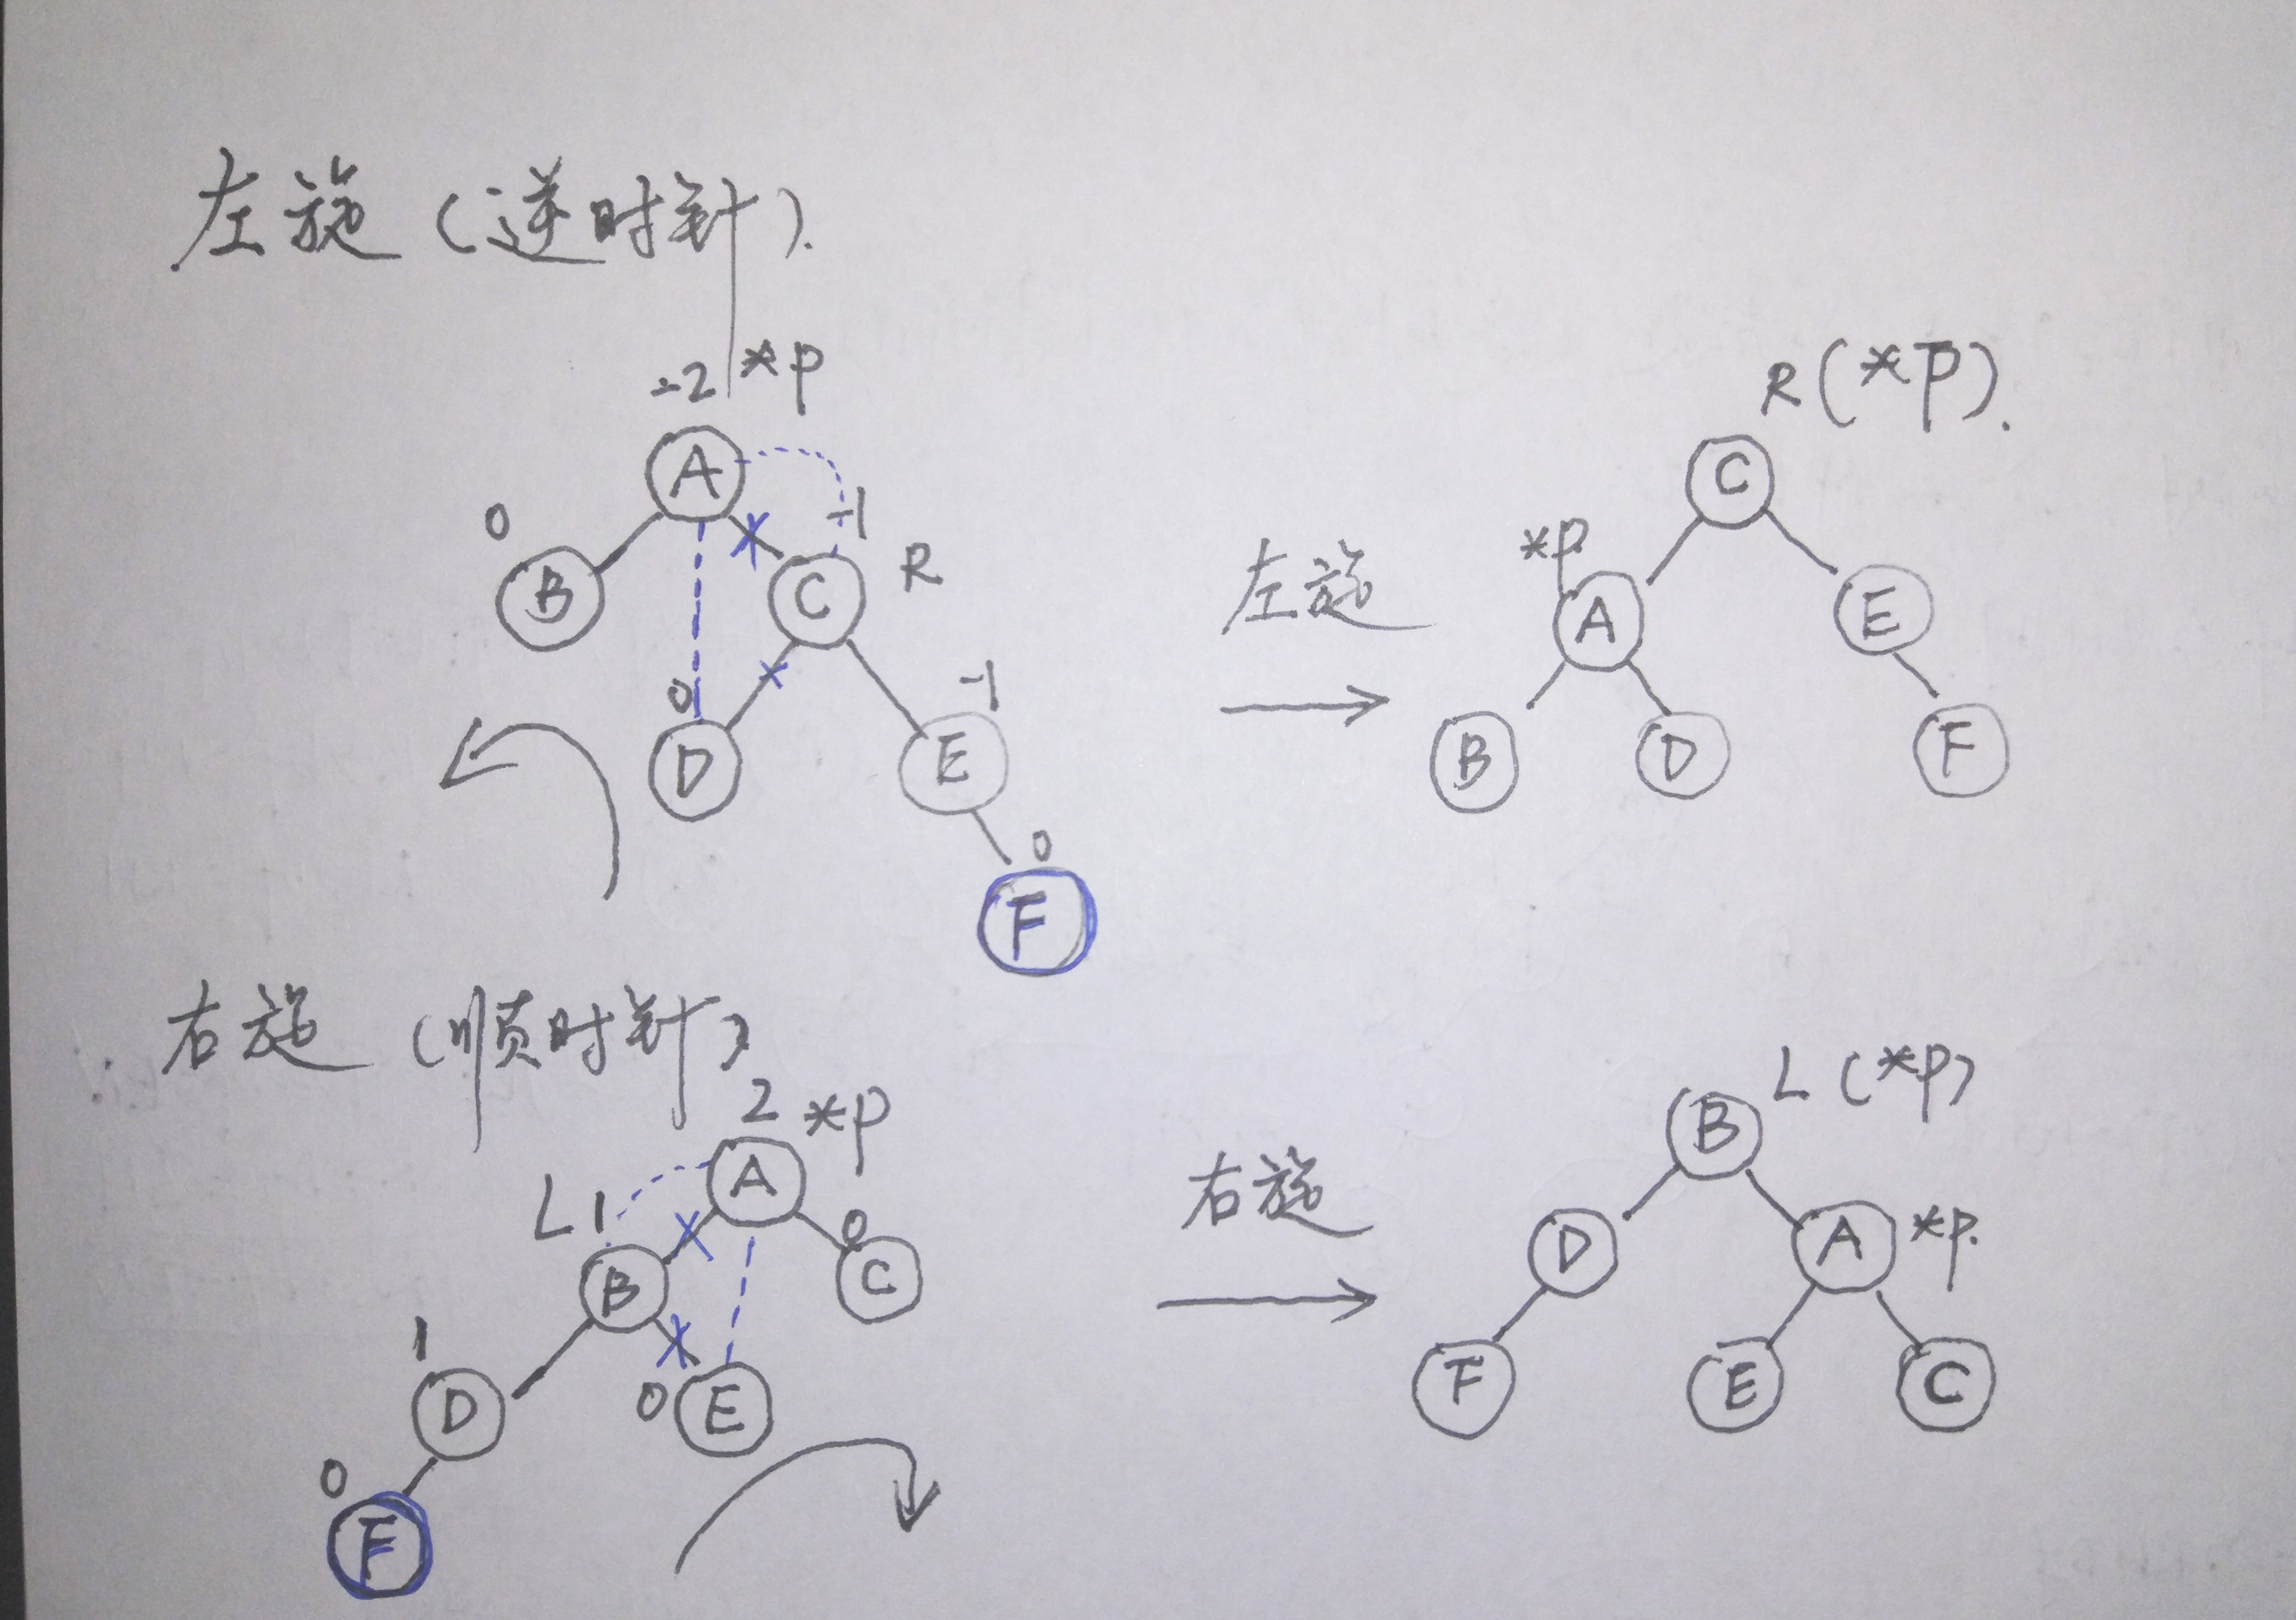 左旋(逆时针).
-2 *p
A
0
B
-1
C R
0
D
-1
E
0
F
左旋
R(*P).
C
*p
A
E
B
D
F
右旋(顺时针)
2 *p
A
L 1
B
0
C
1
D
0 E
0
F
右旋
L (*p)
B
D
A *p.
F
E
C